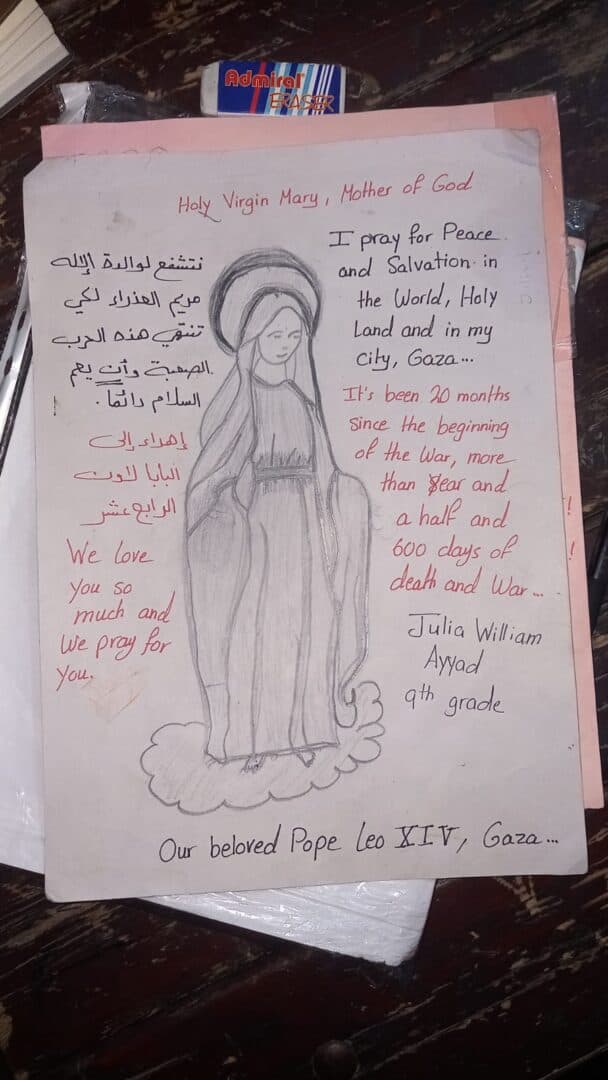 Admiral
ERASER
Holy Virgin Mary, Mother of God
نتشفع لوالدة الإله
مريم العذراء لكي
تنتهي هذه الحرب
الصعبة وأن يعم
السلام دائماً.
إهداء إلى
البابا لاون
الرابع عشر
We love
you so
much and
We pray for
you.
I pray for Peace
and Salvation in
the World, Holy
Land and in my
city, Gaza...
It's been 20 months
since the beginning
of the War, more
than Year and
a half and
600 days of
death and War...
Julia William
Ayyad
9th grade
Our beloved Pope Leo XIV, Gaza...